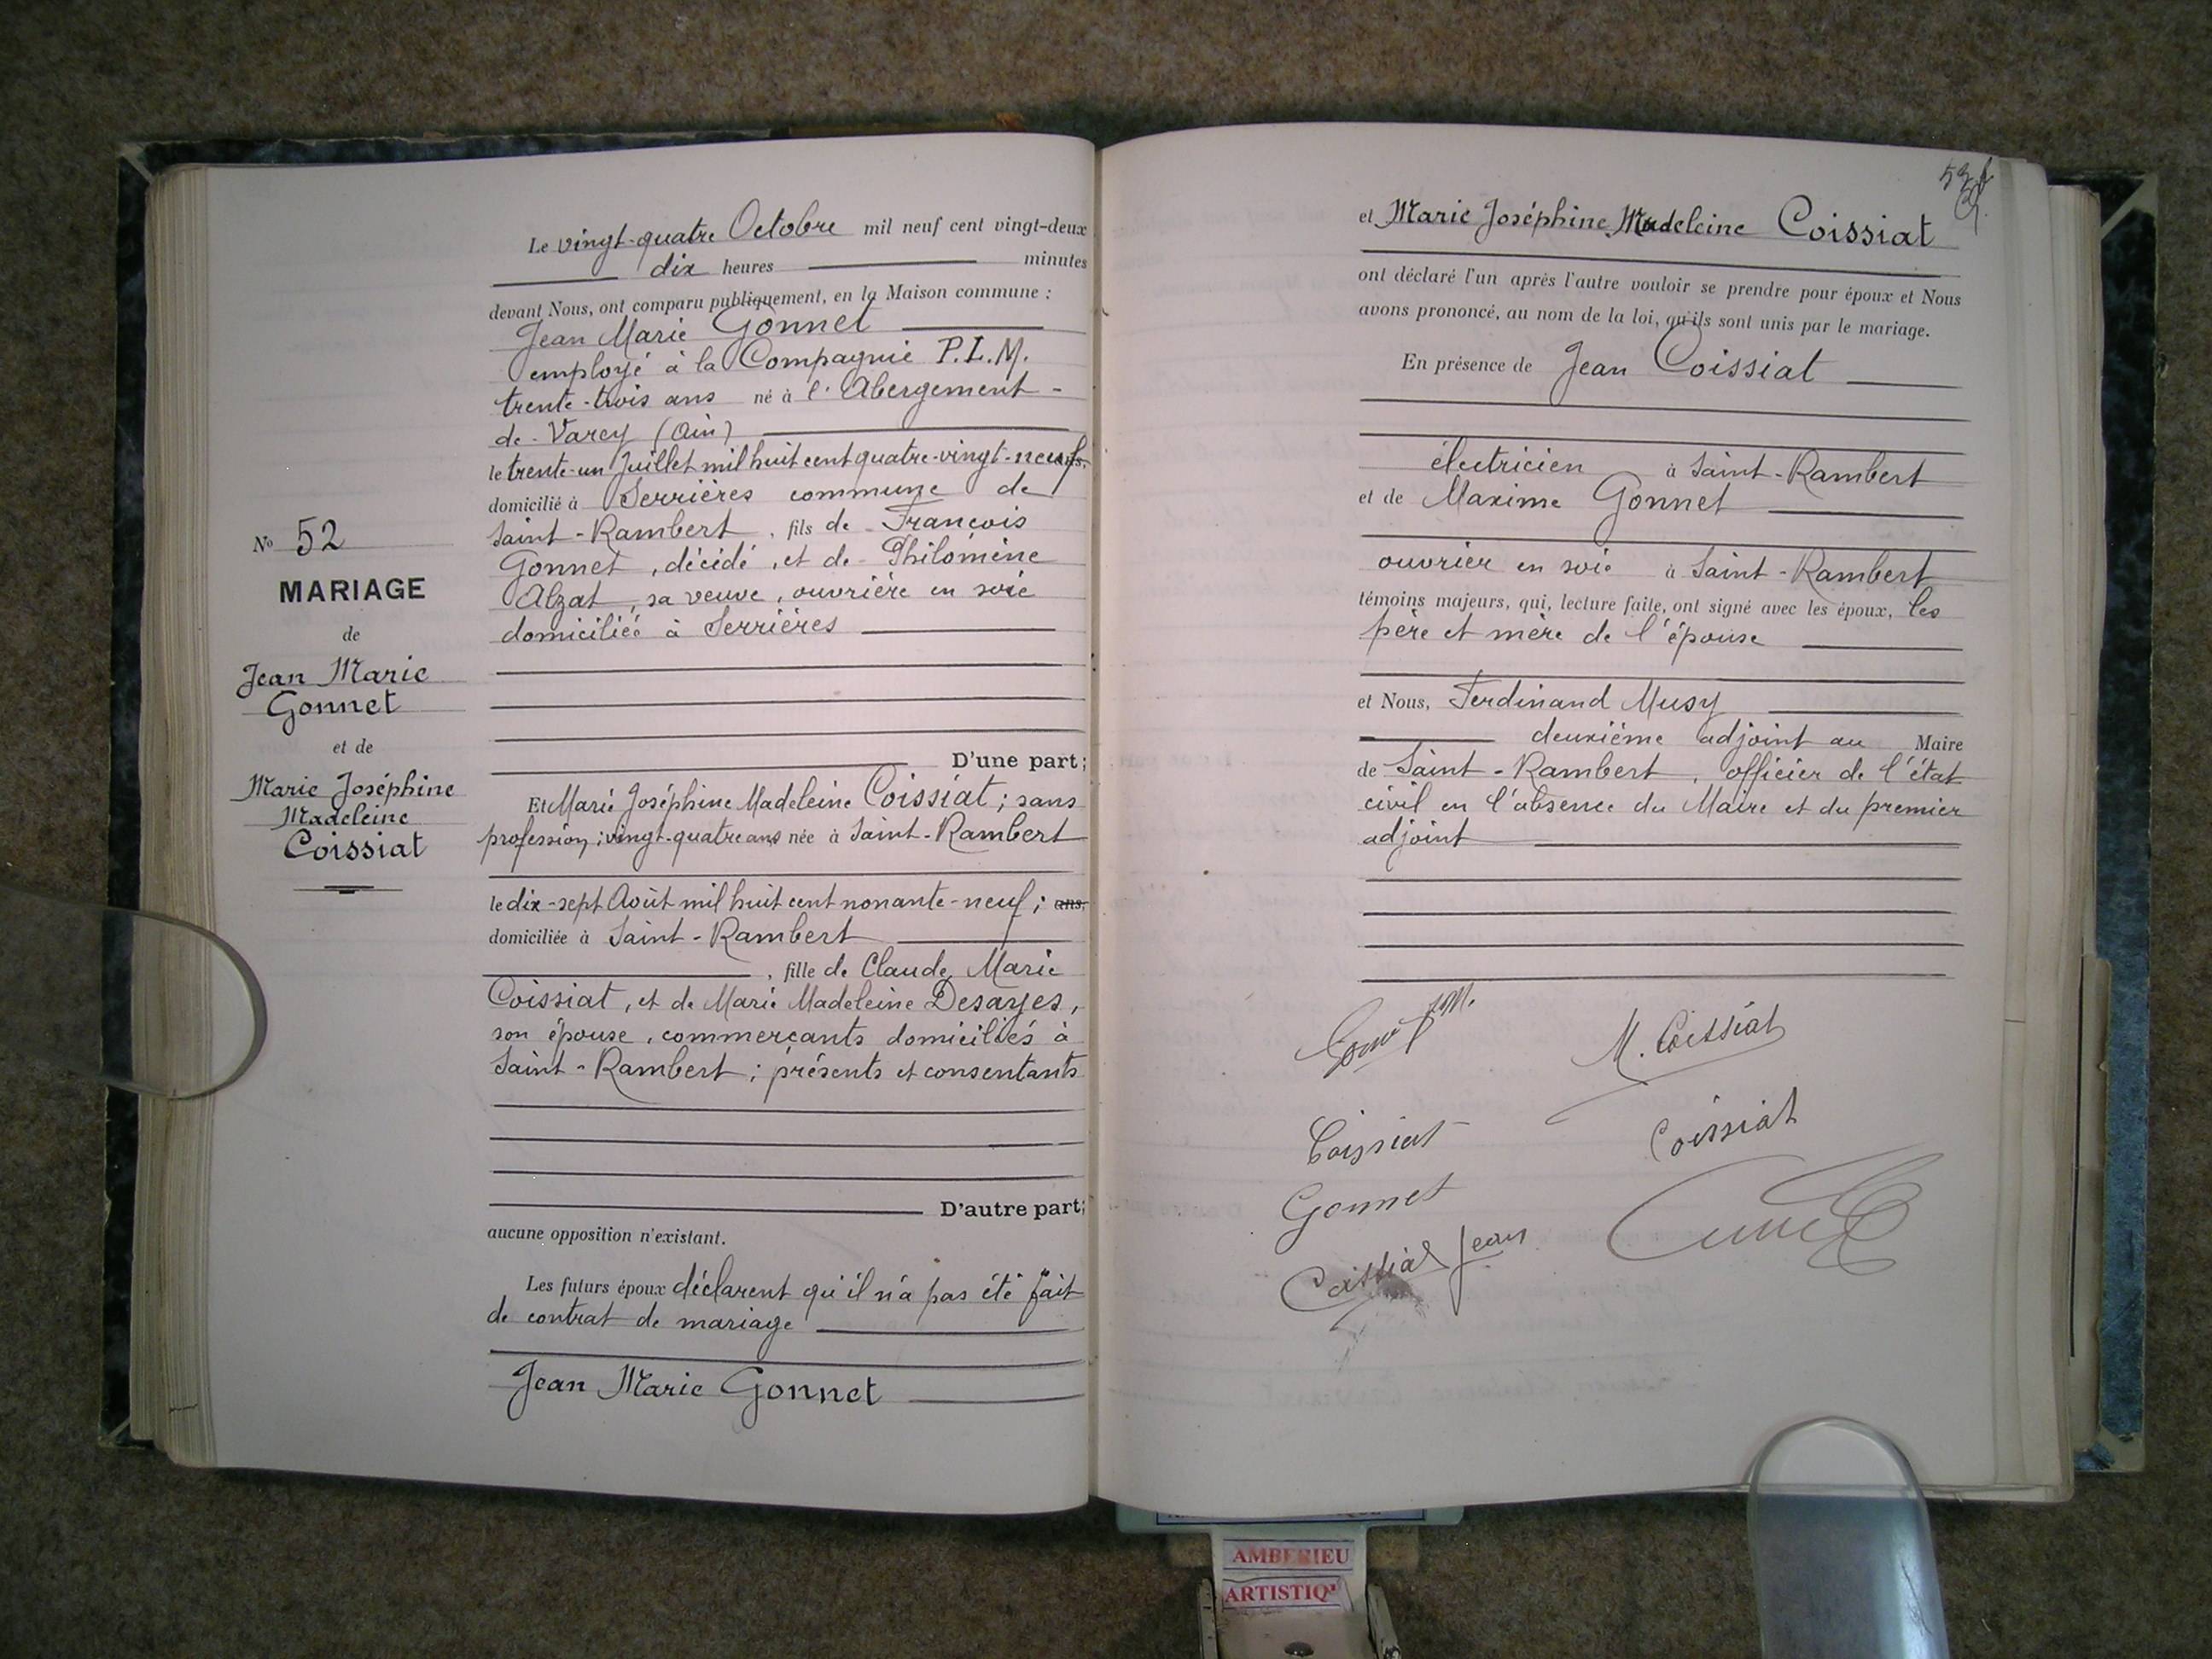 Le vingt-quatre Octobre mil neuf cent vingt-deux
dix heures minutes
devant Nous, ont comparu publiquement, en la Maison commune :
Jean Marie Gonnet
employé à la Compagnie P.L.M.
trente-trois ans né à l'Abergement-
de-Varey (Ain)
le trente-un Juillet mil huit cent quatre-vingt-neuf ans.
domicilié à Serrières commune de
Saint-Rambert, fils de François
Gonnet, décédé, et de Philomène
Alzat, sa veuve, ouvrière en soie
domiciliée à Serrières
D'une part;
No 52
MARIAGE
de
Jean Marie
Gonnet
et de
Marie Joséphine
Madeleine
Coissiat
Et Marie Joséphine Madeleine Coissiat; sans
profession; vingt-quatre ans née à Saint-Rambert
le dix-sept Août mil huit cent nonante-neuf; ans,
domiciliée à Saint-Rambert
, fille de Claude Marie
Coissiat, et de Marie Madeleine Desayes,
son épouse, commerçants domiciliés à
Saint-Rambert; présents et consentants
D'autre part;
aucune opposition n'existant.
Les futurs époux déclarent qu'il n'a pas été fait
de contrat de mariage
Jean Marie Gonnet
et Marie Joséphine Madeleine Coissiat
ont déclaré l'un après l'autre vouloir se prendre pour époux et Nous
avons prononcé, au nom de la loi, qu'ils sont unis par le mariage.
En présence de Jean Coissiat
électricien à Saint-Rambert
et de Maxime Gonnet
ouvrier en soie à Saint-Rambert
témoins majeurs, qui, lecture faite, ont signé avec les époux, les
père et mère de l'épouse
et Nous, Ferdinand Musy
deuxième adjoint au Maire
de Saint-Rambert, officier de l'état
civil en l'absence du Maire et du premier
adjoint
M. Coissiat
Coissiat
Coissiat
Gonnet
Coissiat Jean
AMBERIEU
ARTISTIQ